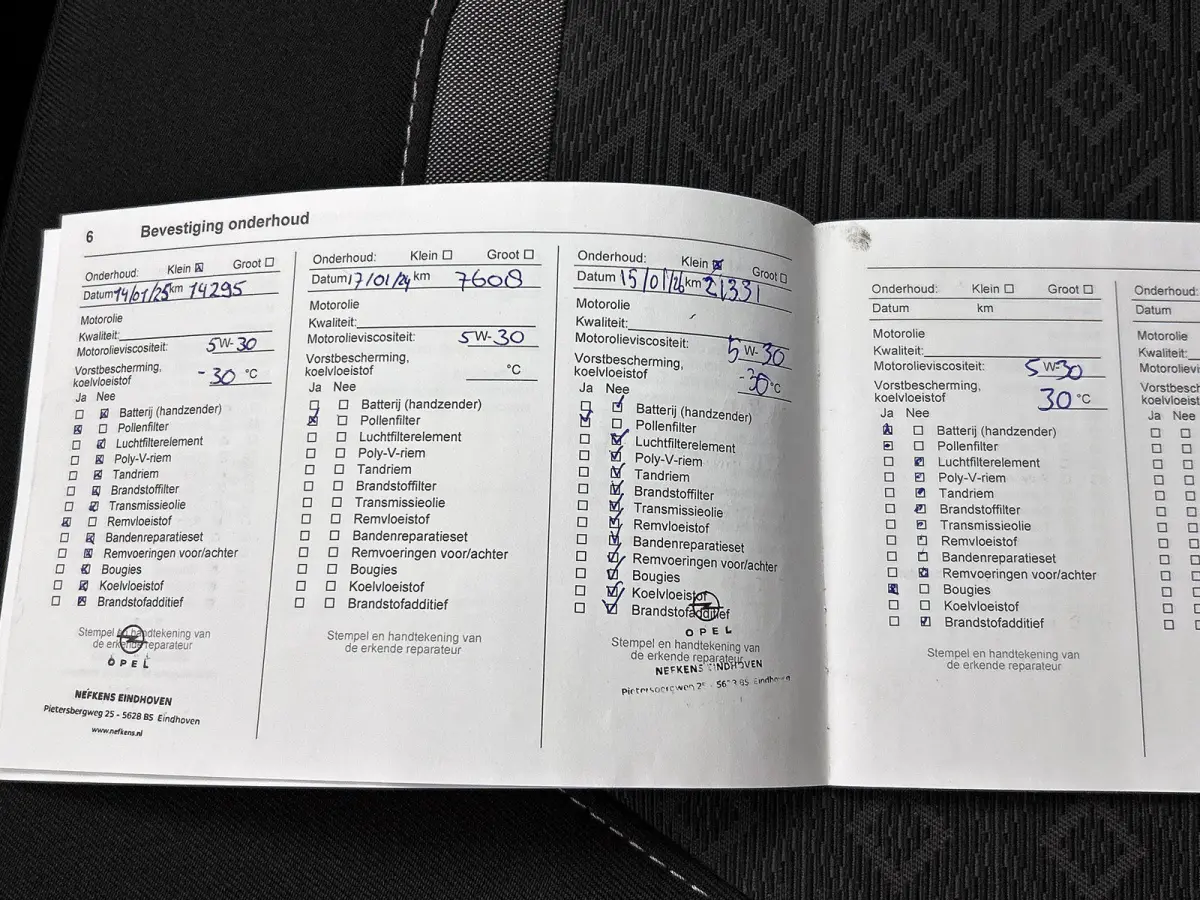 6 Bevestiging onderhoud
Onderhoud: Klein Groot
Datum 14/01/25 km 14295
Motorolie
Kwaliteit:
Motorolieviscositeit: 5W-30
Vorstbescherming,
koelvloeistof -30 °C
Ja Nee
Batterij (handzender)
Pollenfilter
Luchtfilterelement
Poly-V-riem
Tandriem
Brandstoffilter
Transmissieolie
Remvloeistof
Bandenreparatieset
Remvoeringen voor/achter
Bougies
Koelvloeistof
Brandstofadditief
Stempel en handtekening van
de erkende reparateur
OPEL
NEFKENS EINDHOVEN
Pietersbergweg 25 - 5628 BS Eindhoven
www.nefkens.nl
Onderhoud: Klein Groot
Datum 17/01/24 km 7608
Motorolie
Kwaliteit:
Motorolieviscositeit: 5W-30
Vorstbescherming,
koelvloeistof °C
Ja Nee
Batterij (handzender)
Pollenfilter
Luchtfilterelement
Poly-V-riem
Tandriem
Brandstoffilter
Transmissieolie
Remvloeistof
Bandenreparatieset
Remvoeringen voor/achter
Bougies
Koelvloeistof
Brandstofadditief
Stempel en handtekening van
de erkende reparateur
Onderhoud: Klein Groot
Datum 15/01/26 km 21331
Motorolie
Kwaliteit:
Motorolieviscositeit: 5W-30
Vorstbescherming,
koelvloeistof -30 °C
Ja Nee
Batterij (handzender)
Pollenfilter
Luchtfilterelement
Poly-V-riem
Tandriem
Brandstoffilter
Transmissieolie
Remvloeistof
Bandenreparatieset
Remvoeringen voor/achter
Bougies
Koelvloeistof
Brandstofadditief
OPEL
Stempel en handtekening van
de erkende reparateur
NEFKENS EINDHOVEN
Eindhoven
Onderhoud: Klein Groot
Datum km
Motorolie
Kwaliteit:
Motorolieviscositeit: 5W-30
Vorstbescherming,
koelvloeistof 30 °C
Ja Nee
Batterij (handzender)
Pollenfilter
Luchtfilterelement
Poly-V-riem
Tandriem
Brandstoffilter
Transmissieolie
Remvloeistof
Bandenreparatieset
Remvoeringen voor/achter
Bougies
Koelvloeistof
Brandstofadditief
Stempel en handtekening van
de erkende reparateur
Onderhoud:
Datum
Motorolie
Kwaliteit:
Motorolievi
Vorstbesch
koelvloeisto
Ja Nee